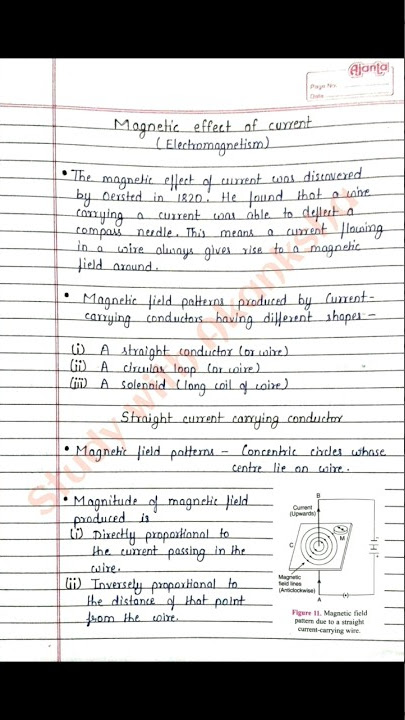 Ajanta
Page No:
Date
Magnetic effect of current
(Electromagnetism)
• The magnetic effect of current was discovered
by Oersted in 1820. He found that a wire
carrying a current was able to deflect a
compass needle. This means a current flowing
in a wire always gives rise to a magnetic
field around.
• Magnetic field patterns produced by Current-
carrying conductors having different shapes-
(i) A straight conductor (or wire)
(ii) A circular loop (or wire)
(iii) A solenoid (long coil of wire)
Straight current carrying conductor
• Magnetic field patterns - Concentric circles whose
centre lie on wire.
• Magnitude of magnetic field
produced is
(i) Directly proportional to
the current passing in the
wire.
(ii) Inversely proportional to
the distance of that point
from the wire.
B
Current
(Upwards)
M
C
Magnetic
field lines
(Anticlockwise)
A
Figure 11. Magnetic field
pattern due to a straight
current-carrying wire.
Study with Akanksha